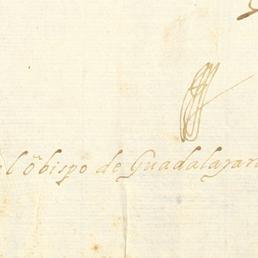 al õbispo de Guadalaxara